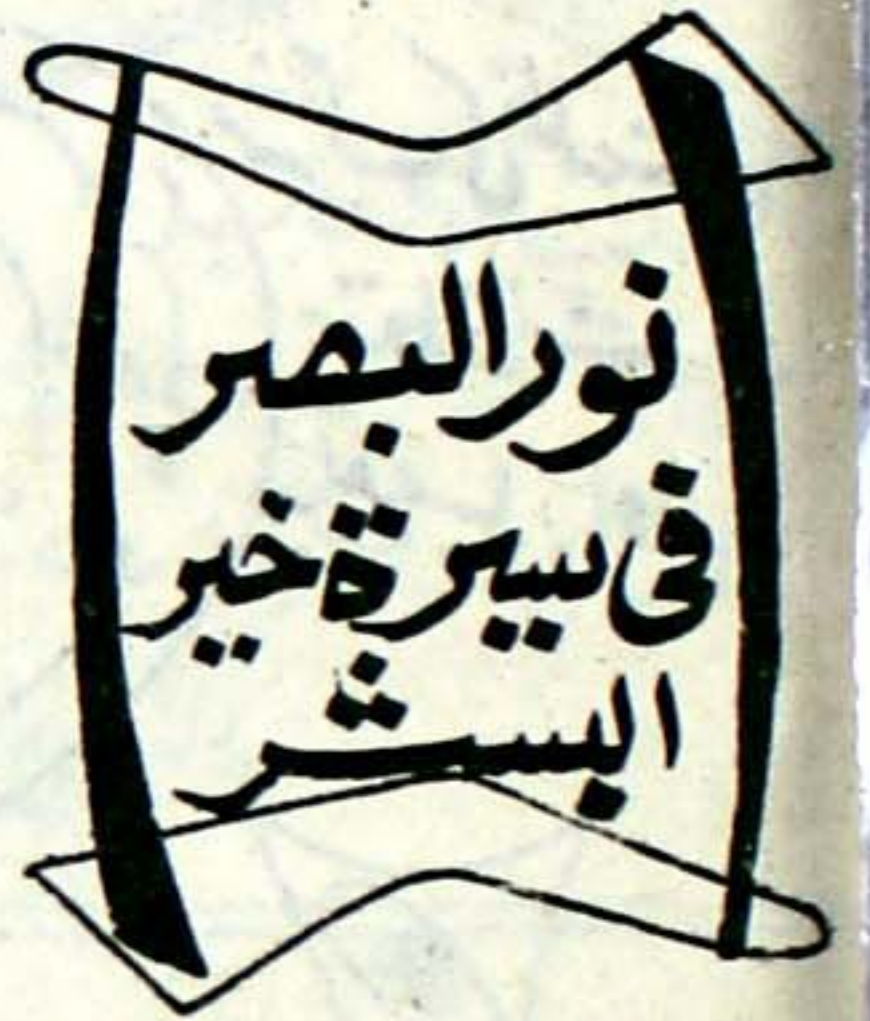 نور البصر
فى سيرة خير
البشر